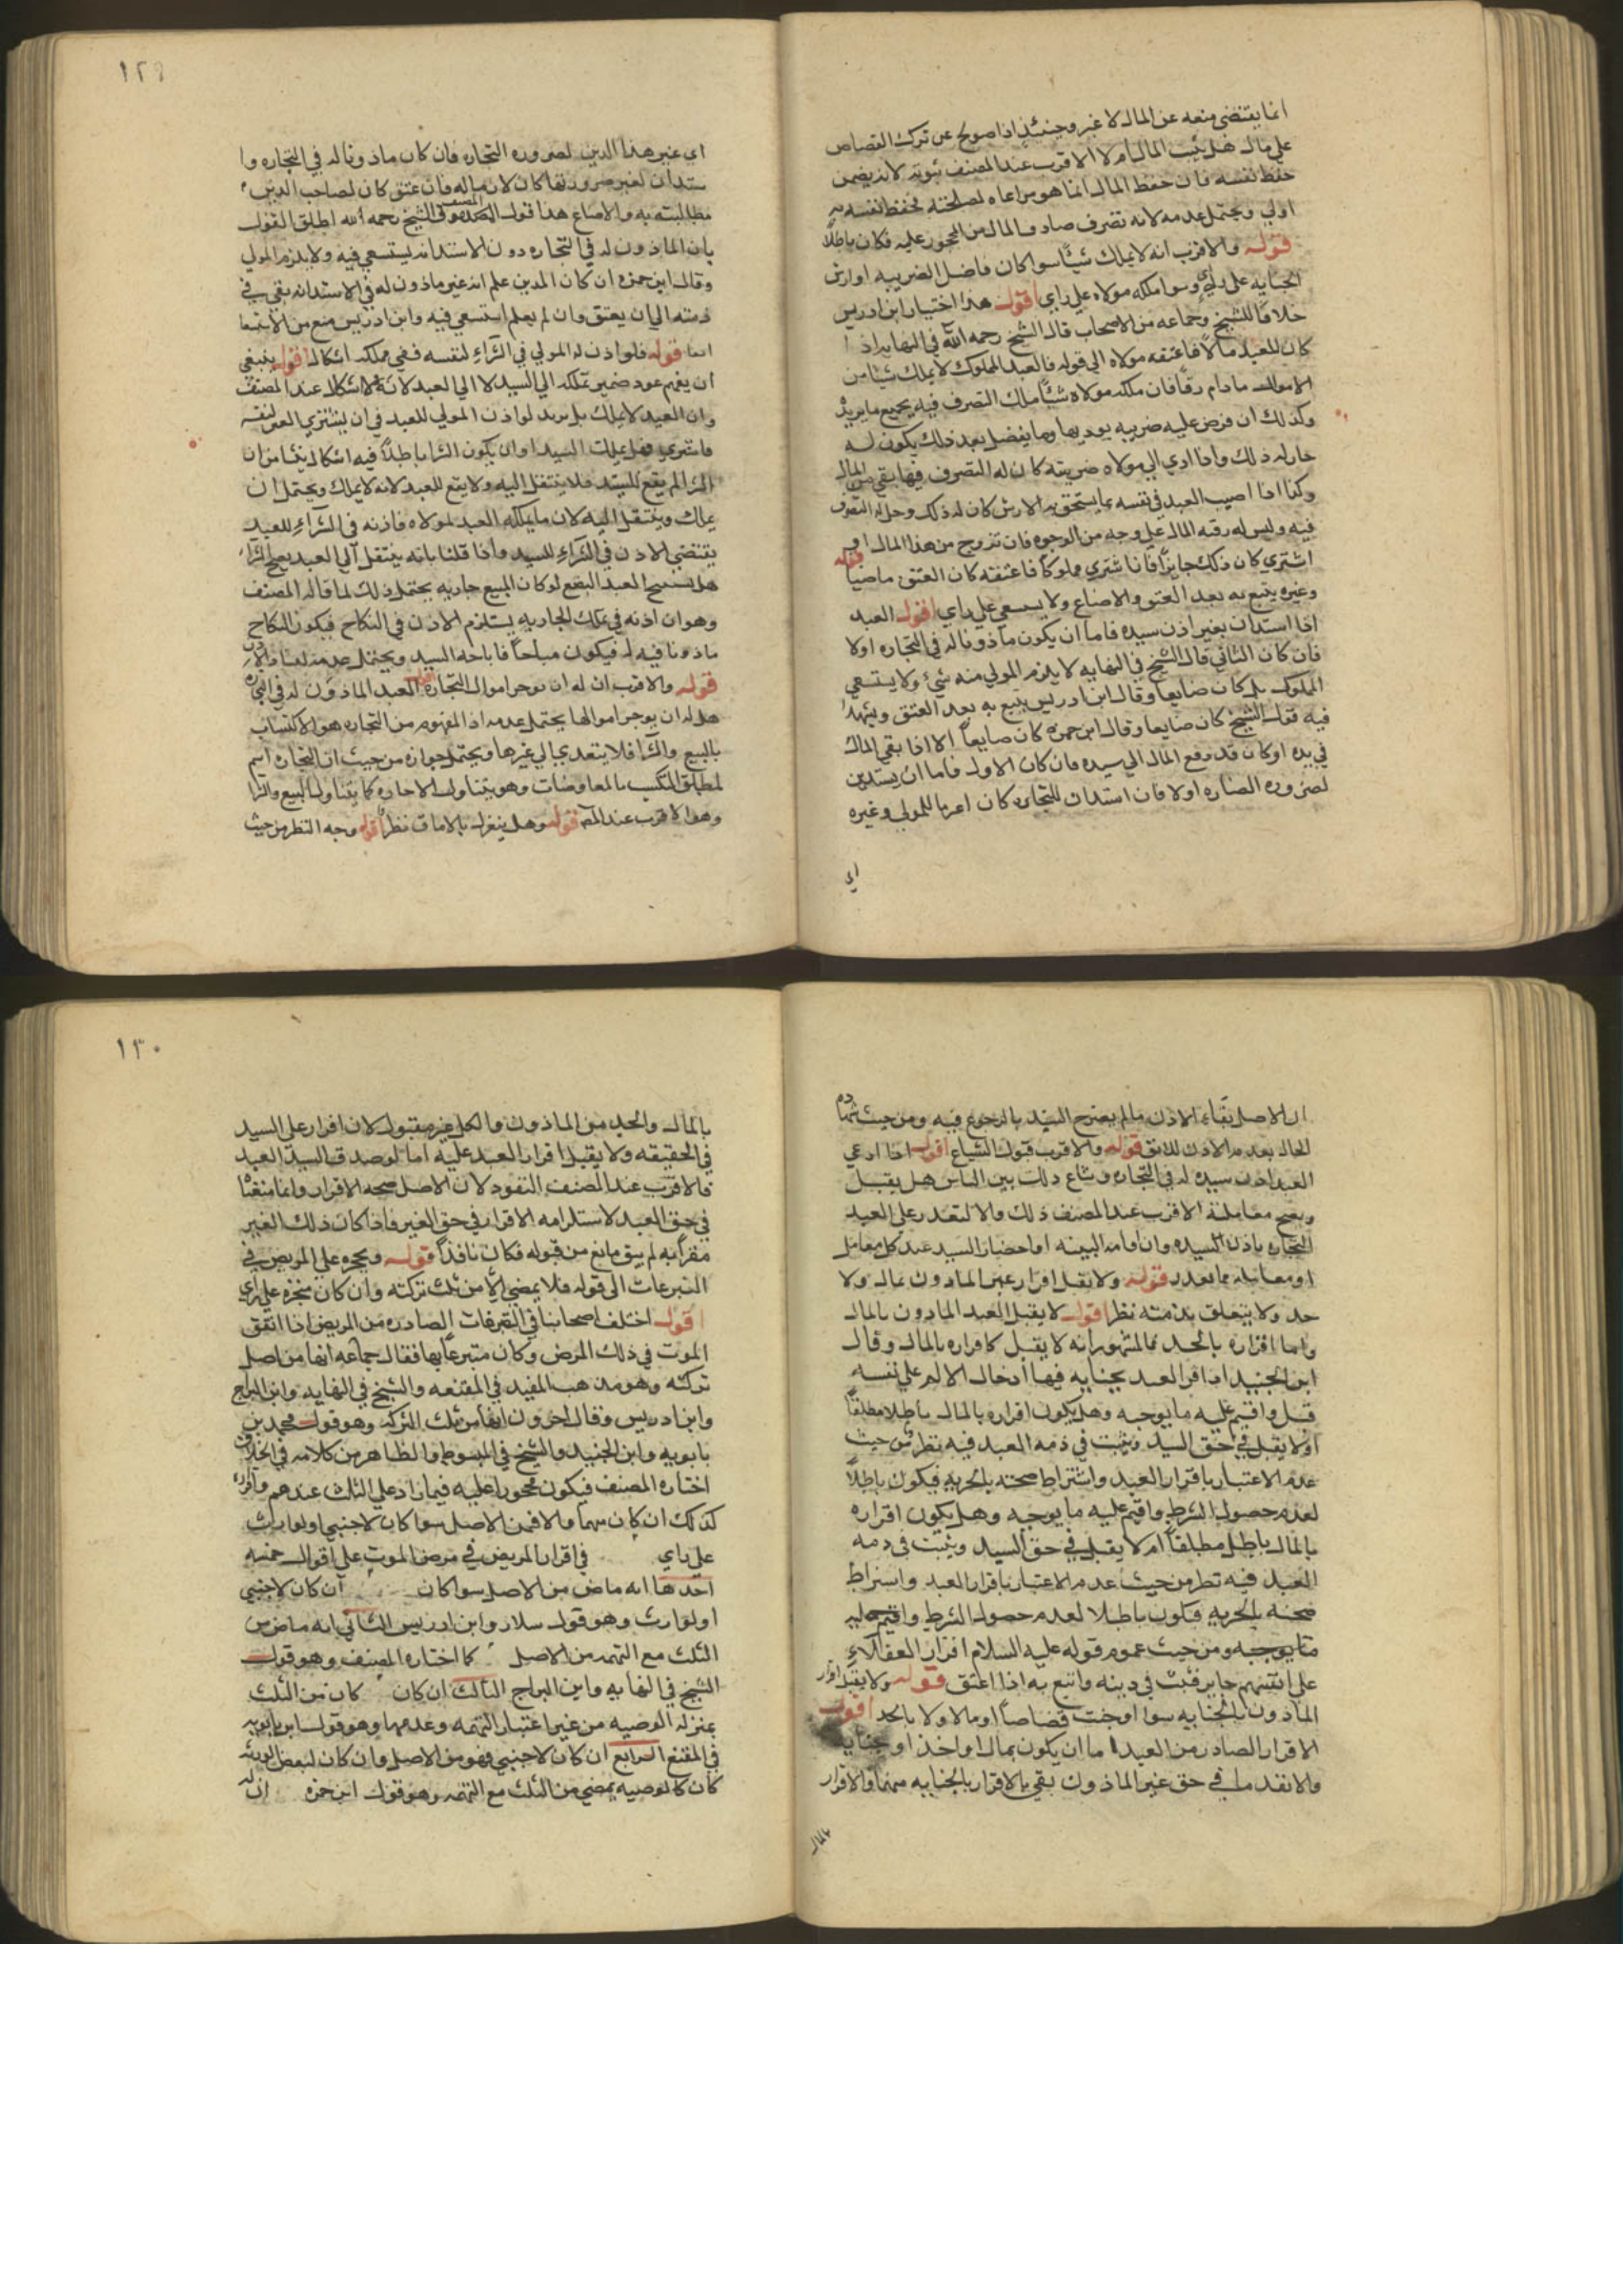 انما يقتضى منعه عن المال لا غير وحينئذ اذا صولح عن ترك القصاص
على مال هل يثبت المال ام لا الاقرب عند المصنف ثبوته لانه يضمن
حفظ نفسه فان حفظ المال انما هو مراعاه لمصلحته فحفظ نفسه
اولى ويحتمل عدمه لانه تصرف صادف المال من المحجور عليه فكان باطلا
قوله والاقرب انه لا يملك شيئا سوا كان فاضل الضريبه او ارش
الجنايه على راي وسوا ملكه مولاه على راي اقول هذا اختيار ابن ادريس
خلافا للشيخ وجماعه من الاصحاب قال الشيخ رحمه الله في النهايه اذا
كان للعبد مالا فاعتقه مولاه الى قوله فالعبد المملوك لا يملك شيئا من
الاموال ما دام رقا فان ملكه مولاه شيئا ملك التصرف فيه بجميع ما يريد
وكذلك ان فرض عليه ضريبه يوديها وما يفضل بعد ذلك يكون له
جاز له ذلك واذا ادي الى مولاه ضريبته كان له التصرف فيما بقى من المال
وكذا اذا اصيب العبد في نفسه بما يستحق به الارش كان له ذلك وحل له التصرف
فيه وليس له رقبه المال على وجه من الوجوه فان تزوج من هذا المال او
اشتري كان ذلك جايزا فان اشتري مملوكا فاعتقه كان العتق ماضيا قوله
وغيره يتبع به بعد العتق والاضاع ولا يسعى على راي اقول العبد
اذا استدان بغير اذن سيده فاما ان يكون ماذونا له في التجاره اولا
فان كان الثاني قال الشيخ في النهايه لا يلزم المولى منه شيء ولا يستسعى
المملوك بل كان ضايعا وقال ابن ادريس يتبع به بعد العتق ويشهد
فيه قول الشيخ كان ضايعا وقال ابن حمزه كان ضايعا الا اذا بقى المال
في يده او كان قد دفع المال الى سيده فان كان الاول فاما ان يستدين
لضروره التجاره اولا فان استدان للتجاره كان لازما للمولى وغيره
اي
١٢٩
اي غير هذا الدين لضروره التجاره فان كان ماذونا له في التجاره وا
ستدان لغير ضرورتها كان لازماله فان عتق كان لصاحب الدين
مطالبته به والاضاع هذا قول المصنف وفي الشيخ رحمه الله اطلق القول
بان الماذون له في التجاره دون الاستدانه يستسعي فيه ولا يلزم المولى
وقال ابن حمزه ان كان المدين علم انه غير ماذون له في الاستدانه بقى في
ذمته الى ان يعتق وان لم يعلم استسعي فيه وابن ادريس منع من الاستسعا
ايضا قوله فلو اذن له المولى في الشراء لنفسه ففى تملكه اشكال اقول ينبغي
ان يفهم عود ضمير تملكه الى السيد لا الى العبد لانه لا اشكال عند المصنف
وان العبد لا يملك بل يريد لو اذن المولى للعبد في ان يشتري العبد لنفسه
فاشتري فهل يملك السيد او ان يكون الشرا باطلا فيه اشكال ينشا من ان
الشرا لم يقع للسيد فلا ينتقل اليه ولا يقع للعبد لانه لا يملك ويحتمل ان
يملك وينتقل اليه لان ما يملكه العبد لمولاه فاذنه في الشراء للعبد
يقتضي الاذن في الشراء للسيد واذا قلنا بانه ينتقل الى العبد يصح الشرا
هل يستبيح العبد البضع لو كان المبيع جاريه يحتمل ذلك لما قاله المصنف
وهو ان اذنه في تملك الجاريه يستلزم الاذن في النكاح فيكون النكاح
ماذونا فيه فيكون مباحا فاباحه السيد ويحتمل عدمه لفساد الاذن
قوله والاقرب ان له ان يوجر اموال التجاره اقول العبد الماذون له في التجاره
هل له ان يوجر اموالها يحتمل عدمه اذ المفهوم من التجاره هو الاكتساب
بالبيع والشرا فلا يتعدي الى غيرها ويحتمل جوازه من حيث ان التجاره اسم
لمطلق التكسب بالمعاوضات وهو يتناول الاجاره كما يتناول البيع والشرا
وهو الاقرب عند المص قوله وهل ينعزل بالاباق نظر اقول وجه النظر من حيث
ان الاصل بقاء الاذن ما لم يصرح السيد بالرجوع فيه ومن حيث شهاده
الحال بعدم الاذن للابق قوله والاقرب قبول الشياع اقول اذا ادعى
العبد اذن سيده له في التجاره وشاع ذلك بين الناس هل يقبل
ويصح معاملته الاقرب عند المصنف ذلك والا لتعذر على العبد
التجاره باذن السيده وان اقامه البينه او احضار السيد عند كل معامل
او معامله مما يعذر قوله ولا يقبل اقرار غير الماذون بمال ولا
حد ولا يتعلق بذمته نظر اقول لا يقبل العبد الماذون بالمال
واما اقراره بالحد فالمشهور انه لا يقبل كاقراره بالمال وقال
ابن الجنيد اذا اقر العبد بجنايه فيها ادخال الالم على نفسه
قبل واقيم عليه ما يوجبه وهل يكون اقراره بالمال باطلا مطلقا
او لا يقبل في حق السيد ويثبت في ذمه العبد فيه نظر من حيث
عدم الاعتبار باقرار العبد واشتراط صحته بالحريه فيكون باطلا
لعدم حصول الشرط واقيم عليه ما يوجبه وهل يكون اقراره
بالمال باطل مطلقا ام لا يقبل في حق السيد ويثبت في ذمه
العبد فيه نظر من حيث عدم الاعتبار باقرار العبد واشتراط
صحته بالحريه فيكون باطلا لعدم حصول الشرط واقيم عليه
ما يوجبه ومن حيث عموم قوله عليه السلام اقرار العقلاء
على انفسهم جايز فثبت في ذمته واتبع به اذا اعتق قوله ولا يقبل اقرار
الماذون بالجنايه سوا اوجبت قصاصا او مالا ولا بالحد اقول
الاقرار الصادر من العبد اما ان يكون بمال او اخذ او جنايه
والا نقدم ما في حق غير الماذون بقى بالاقرار بالجنايه منهما والاقرار
بالمال
١٣٠
بالمال والحد من الماذون والكل غير مقبول لان اقرار على السيد
في الحقيقه ولا يقبل اقرار العبد عليه اما لو صدق السيد العبد
فالاقرب عند المصنف النفوذ لان الاصل صحه الاقرار وانما منعنا
في حق العبد لاستلزامه الاقرار في حق الغير فاذا كان ذلك الغير
مقرا به لم يبق مانع من قبوله فكان نافذا قوله ويحجر على المريض في
التبرعات الى قوله فلا يمضى الا من ثلث تركته وان كان منجزه على راي
اقول اختلف اصحابنا في التصرفات الصادره من المريض اذا اتفق
الموت في ذلك المرض وكان متبرعا بها فقال جماعه انها من اصل
تركته وهو مذهب المفيد في المقنعه والشيخ في النهايه وابن البراج
وابن ادريس وقال اخرون انها من ثلث التركه وهو قول محمد بن
بابويه وابن الجنيد والشيخ في المبسوط والظاهر من كلامه في الخلاف
اختاره المصنف فيكون محجورا عليه فيما زاد على الثلث عندهم واقراره
كذلك ان كان متهما والا فمن الاصل سوا كان لاجنبي او لوارث
على راي في اقرار المريض في مرض الموت على اقوال خمسه
احدها انه ماض من الاصل سوا كان ان كان لاجنبي
او لوارث وهو قول سلار وابن ادريس الثاني انه ماض من
الثلث مع التهمه من الاصل كما اختاره المصنف وهو قول
الشيخ في النهايه وابن البراج الثالث ان كان كان من الثلث
بمنزله الوصيه من غير اعتبار التهمه وعدمها وهو قول ابن بابويه
في المقنع الرابع ان كان لاجنبي فهو من الاصل وان كان لبعض الورثه
كان كالوصيه يمضي من الثلث مع التهمه وهو قول ابن حمزه انه